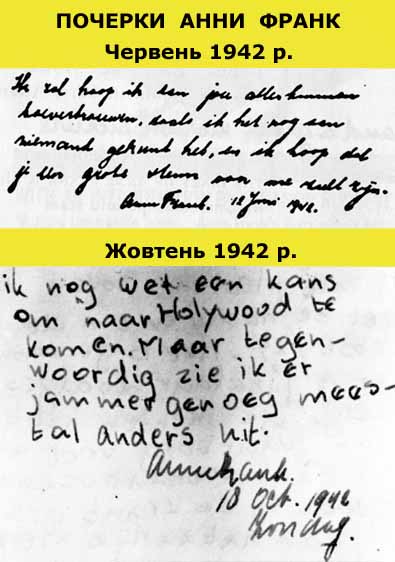 ПОЧЕРКИ АННИ ФРАНК
Червень 1942 р.
Ik zal hoop ik aan jou alles kunnen
toevertrouwen, zoals ik het nog aan
niemand gekund heb, en ik hoop dat
je een grote steun me zult zijn.
Anne Frank. 12 Juni 1942.
Жовтень 1942 р.
ik nog wel een kans
om naar Holywood te
komen. Maar tegen-
woordig zie ik er
jammer genoeg mees-
tal anders uit.
Anne Frank.
18 Oct. 1942
Zondag.